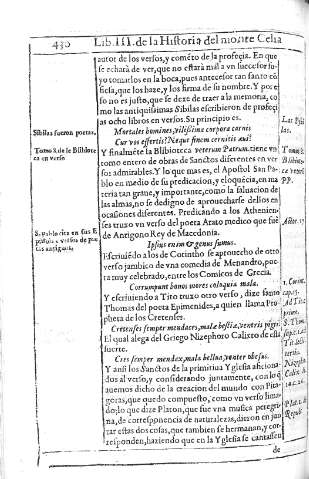 430 Lib. III. de la Historia del monte Celia
autor de los versos, y cometo de la profecia. En que
se echarà de ver, que no estarà mal a vn successor su-
yo tomarlos en la boca, pues antecesor tan santo co-
ficia, que los haze, y los firma de su nombre. Y pos es-
so no es justo, que se dexe de traer a la memoria, co-
mo las antiquissimas Sibilas escribieron de profeci-
as ocho libros en versos. Su principio es.
Sibilas fueron poetas.
Mortales homines, vilissime corpora carnis
Cur vos effertis? Neque finem cernitis aui?
Y finalmẽte la Bliblioteca veterum Patrum. tiene vn
tomo entero de obras de Sanctos diferentes en ver
sos admirables. Y lo que mas es, el Apostol San Pa-
blo en medio de su predicacion, y eloquẽcia, en ma
teria tan graue, y importante, como la saluacion de
las almas, no se dedigno de aprouecharse dellos en
ocasiones diferentes. Predicando a los Athenien-
ses truxo vn verso del poeta Arato medico que fuè
de Antigono Rey de Macedonia.
Tomo 8. de la Bibliote
ca en verso
Ipsius enim & genus sumus.
Escriuiẽdo a los de Corintho se aprouecho de otro
verso jambico de vna comedia de Menandro, poe-
ta muy celebrado, entre los Comicos de Grecia.
Corrumpunt bonos mores coloquia mala.
Y escriuiendo a Tito truxo otro verso, dize santo
Thomas del poeta Epimenides, a quien llama Pro-
pheta de los Cretenses.
Cretenses semper mendaces, malæ bestiæ, ventris pigri
El qual alega del Griego Nizephoro Calixto de esta
suerte.
Cres semper mendax, mala bellua, venter obesus.
Y ansi los Sanctos de la primitiua Yglesia aficiona-
dos al verso, y considerando juntamente, con lo q̃
auemos dicho de la creacion del mundo con Pita-
goras, que quedo compuesto, como vn verso lima-
do; lo que dize Platon, que fue vna musica peregri-
na, de correspponencia de naturalezas, dieron en jun
tar estas dos cosas, que tambien se hermanan, y cor-
responden, haziendo que en la Yglesia se cantassen
de